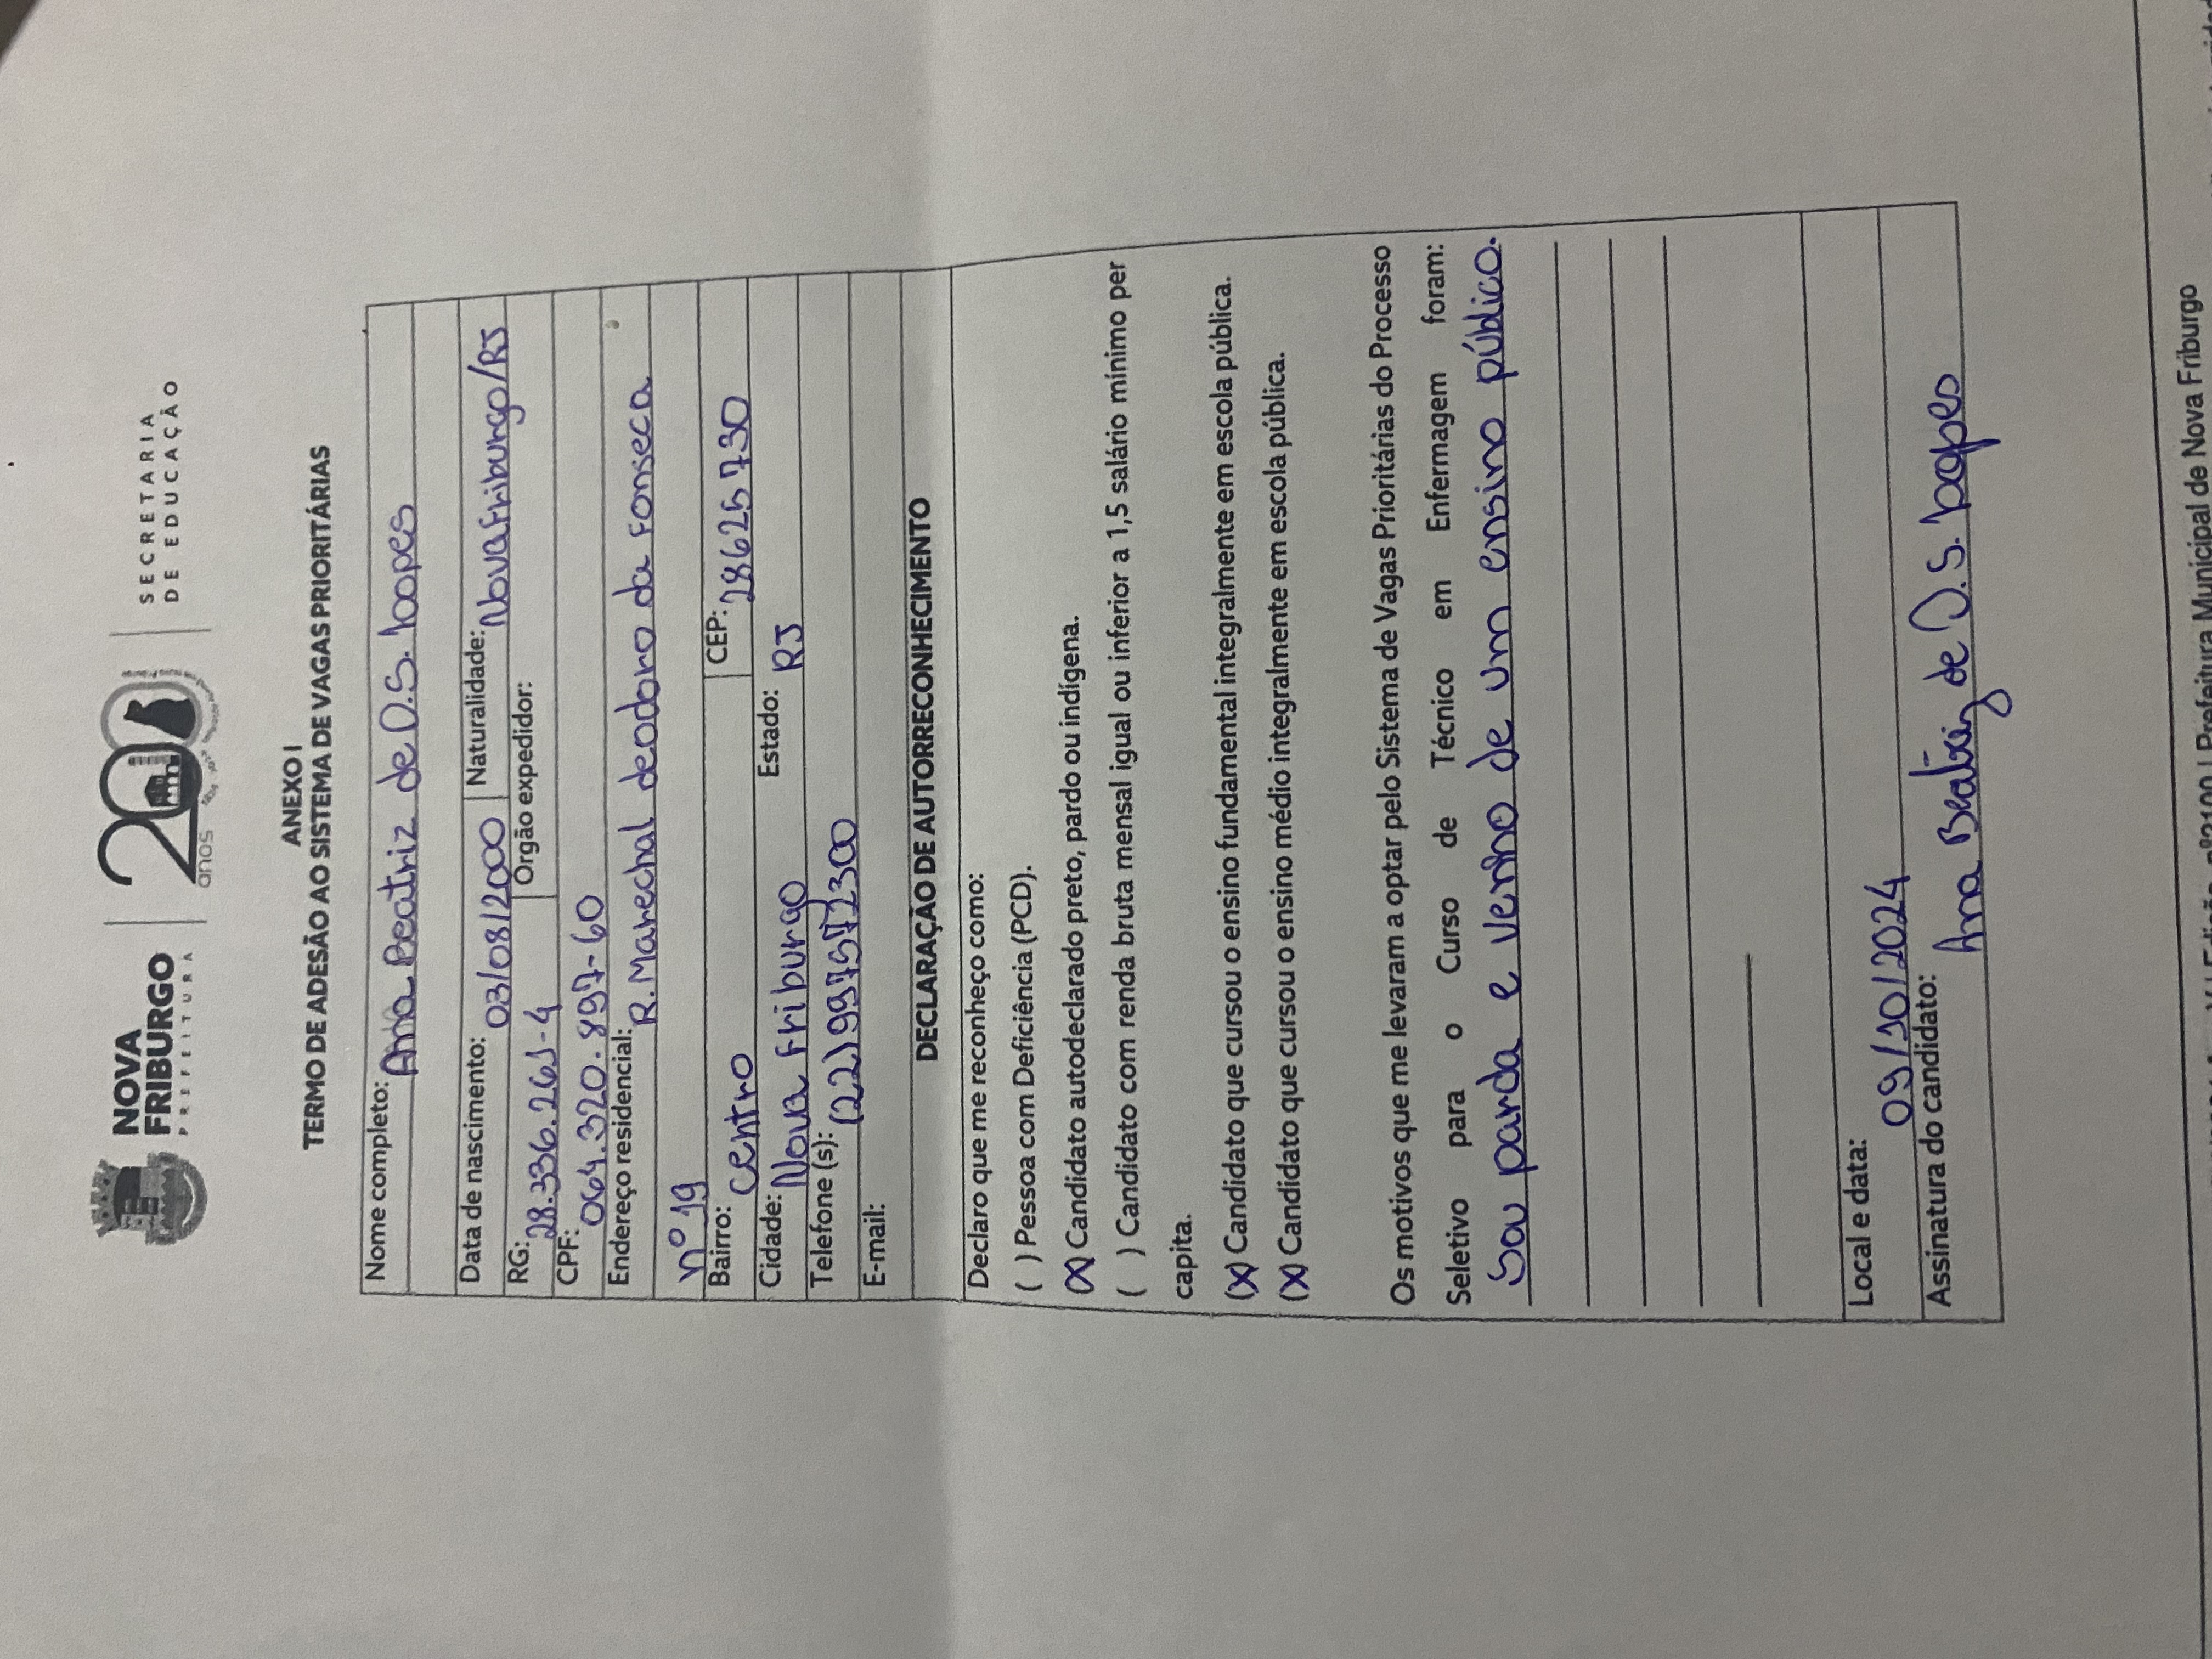 NOVA
FRIBURGO
PREFEITURA
200
anos
SECRETARIA
DE EDUCAÇÃO
ANEXO I
TERMO DE ADESÃO AO SISTEMA DE VAGAS PRIORITÁRIAS
Nome completo: Ana Beatriz de O.S. Lopes
Data de nascimento: 03/08/2000 Naturalidade: Nova Friburgo/RJ
RG: 28.336.261-4 Órgão expedidor:
CPF: 064.320.897-60
Endereço residencial: R. Marechal deodoro da Fonseca
nº 19
Bairro: centro CEP: 28625730
Cidade: Nova Friburgo Estado: RJ
Telefone (s): (22)997572300
E-mail:
DECLARAÇÃO DE AUTORRECONHECIMENTO
Declaro que me reconheço como:
( ) Pessoa com Deficiência (PCD).
(X) Candidato autodeclarado preto, pardo ou indígena.
( ) Candidato com renda bruta mensal igual ou inferior a 1,5 salário mínimo per
capita.
(X) Candidato que cursou o ensino fundamental integralmente em escola pública.
(X) Candidato que cursou o ensino médio integralmente em escola pública.
Os motivos que me levaram a optar pelo Sistema de Vagas Prioritárias do Processo
Seletivo para o Curso de Técnico em Enfermagem foram:
Sou parda e venho de um ensino público.
Local e data: 09/10/2024
Assinatura do candidato: Ana Beatriz de O.S. Lopes
Edição nº2100 | Prefeitura Municipal de Nova Friburgo